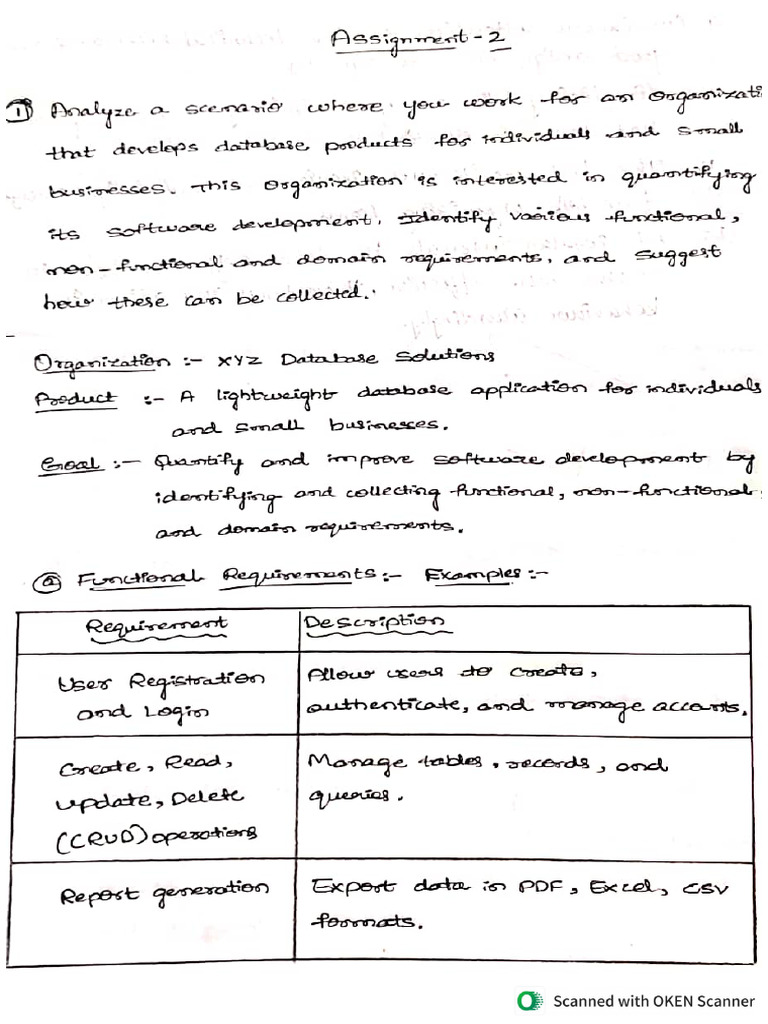 Assignment-2
① Analyze a scenario where you work for an Organizati
that develops database products for individuals and small
businesses. This Organization is interested in quantifying
its software development. Identify various functional,
non-functional and domain requirements, and suggest
how these can be collected.
Organization :- XYZ Database Solutions
Product :- A lightweight database application for individuals
and small businesses.
Goal :- Quantify and improve software development by
identifying and collecting functional, non-functional,
and domain requirements.
ⓐ Functional Requirements:- Examples:-
Requirement
Description
User Registration
and Login
Allow users to create,
authenticate, and manage accounts.
Create, Read,
Update, Delete
(CRUD) operations
Manage tables, records, and
queries.
Report generation
Export data in PDF, Excel, CSV
formats.
Scanned with OKEN Scanner